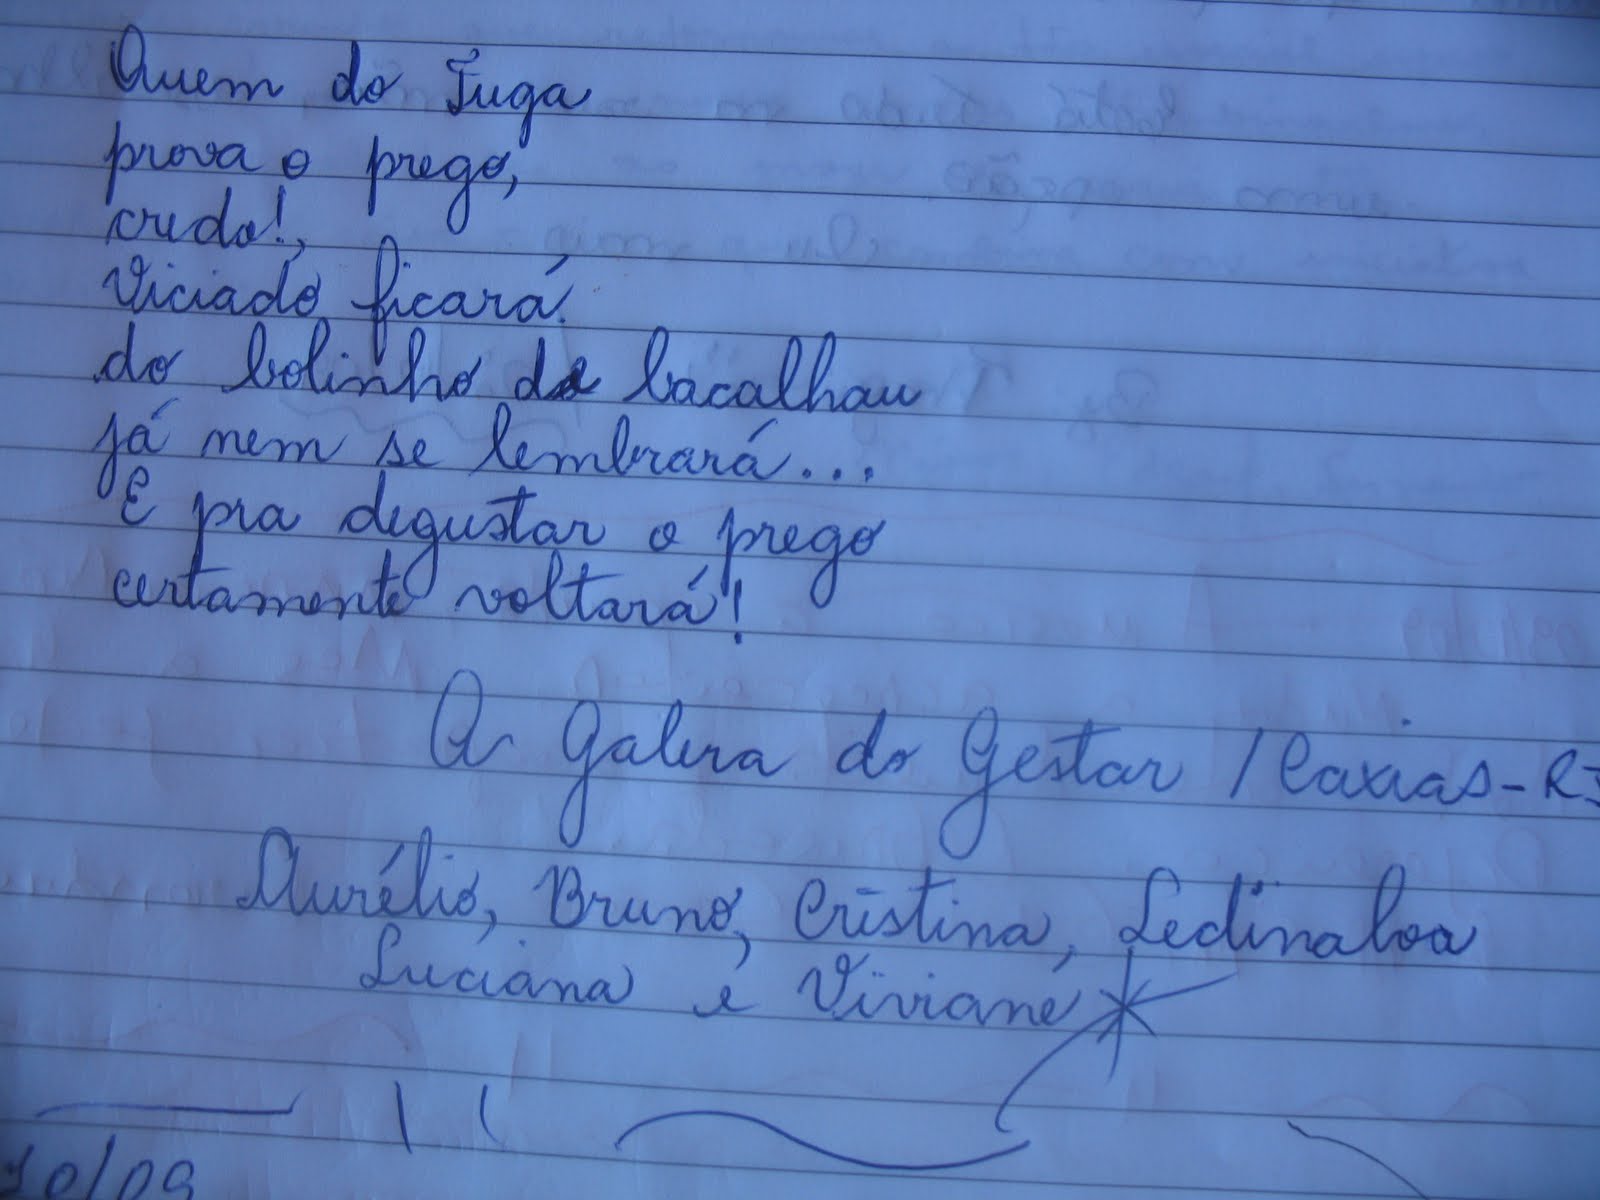 Quem do Tuga
prova o prego,
credo!,
Viciado ficará.
do bolinho de bacalhau
já nem se lembrará...
E pra degustar o prego
certamente voltará!
A Galera do Gestar / Caxias-RJ
Aurélio, Bruno, Cristina, Ledinalva
Luciana e Viviane
10/09